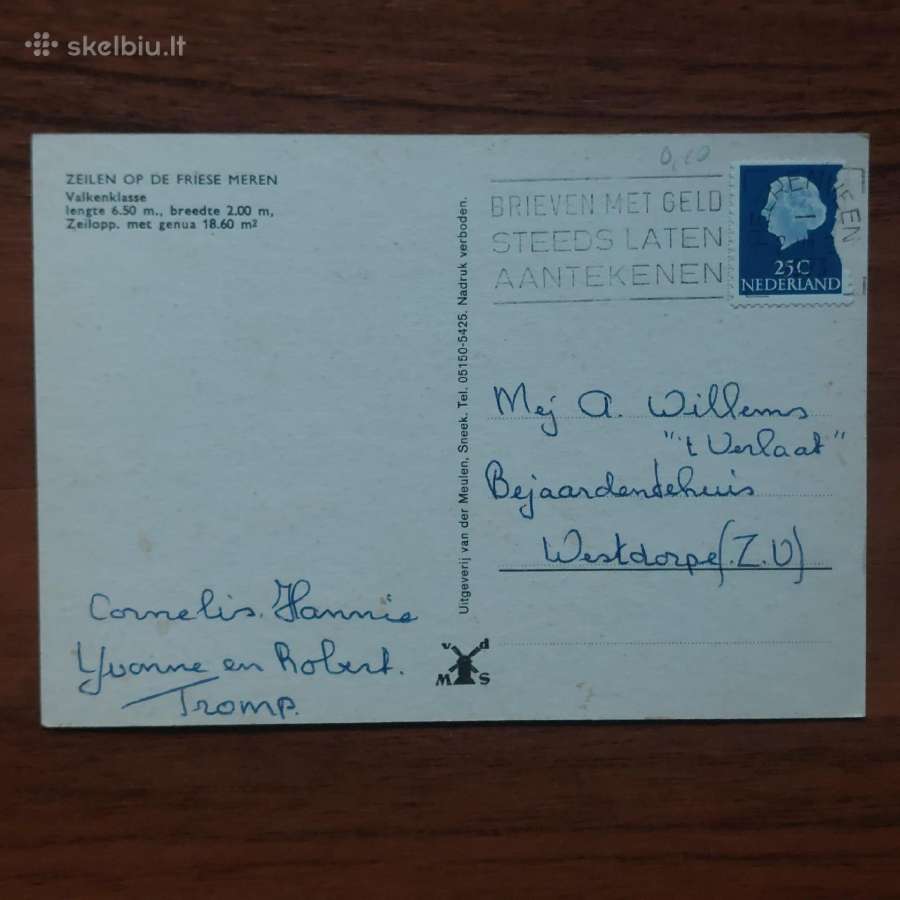 skelbiu.lt
ZEILEN OP DE FRIESE MEREN
Valkenklasse
lengte 6.50 m., breedte 2.00 m,
Zeilopp. met genua 18.60 m²
0,10
BRIEVEN MET GELD
STEEDS LATEN
AANTEKENEN
25C
NEDERLAND
Uitgeverij van der Meulen, Sneek. Tel. 05150-5425. Nadruk verboden.
Mej A. Willems
"'t Verlaat"
Bejaardentehuis
Westdorpe (Z.V)
Cornelis. Hannie
Yvonne en Robert.
Tromp.
v d
M S